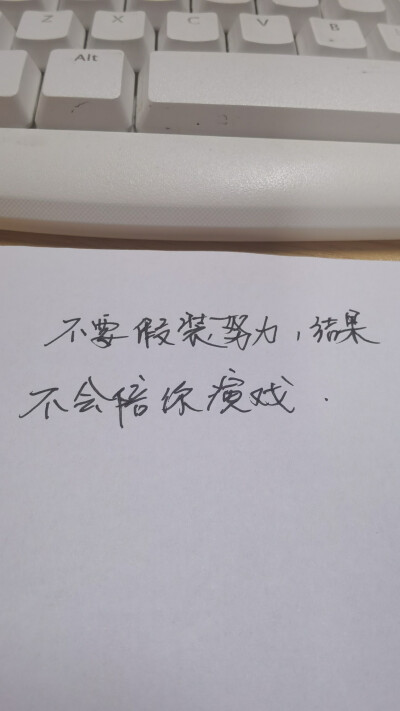 Z X C V B
Alt
不要假装努力，结果
不会陪你演戏.